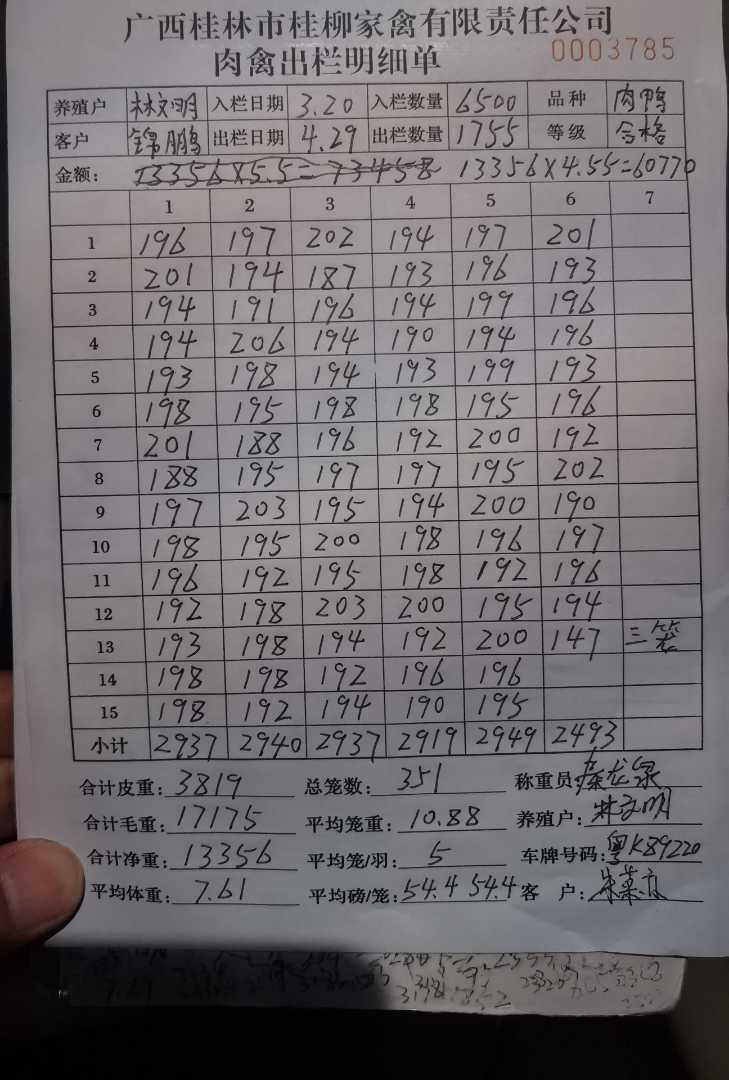 广西桂林市桂柳家禽有限责任公司
肉禽出栏明细单 0003785
养殖户 林文明 入栏日期 3.20 入栏数量 6500 品种 肉鸭
客户 锦鹏 出栏日期 4.29 出栏数量 1755 等级 合格
金额: 13356×5.5=73458 13356×4.55=60770
1 2 3 4 5 6 7
1 196 197 202 194 197 201
2 201 194 187 193 196 193
3 194 191 196 194 199 196
4 194 206 194 190 194 196
5 193 198 194 193 199 193
6 198 195 198 198 195 196
7 201 188 196 192 200 192
8 188 195 197 197 195 202
9 197 203 195 194 200 190
10 198 195 200 198 196 197
11 196 192 195 198 192 196
12 192 198 203 200 195 194
13 193 198 194 192 200 147 三笼
14 198 198 192 196 196
15 198 192 194 190 195
小计 2937 2940 2937 2919 2949 2493
合计皮重: 3819 总笼数: 351 称重员: 秦龙泉
合计毛重: 17175 平均笼重: 10.88 养殖户: 林文明
合计净重: 13356 平均笼/羽: 5 车牌号码: 粤K89220
平均体重: 7.61 平均磅/笼: 54.4 54.4 客 户: